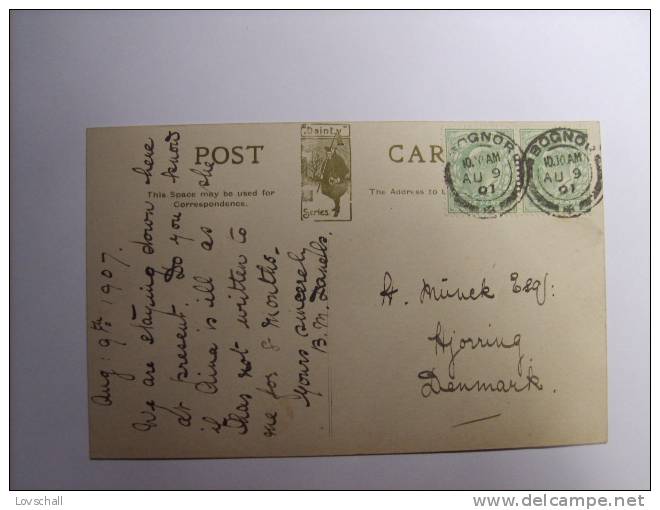 POST CARD
"Dainty"
Series.
This Space may be used for
Correspondence.
The Address to
BOGNOR
10.10 AM
AU 9
07
BOGNOR
10.10 AM
AU 9
07
Aug: 9th 1907.
We are staying down here
at present. Do you know
if Aina is ill as she
has not written to
me for 8 months.
Yours sincerely
B. M. Daniels.
A. Münck Esq:
Hjorring
Denmark.
Lovschall
www.delcampe.net